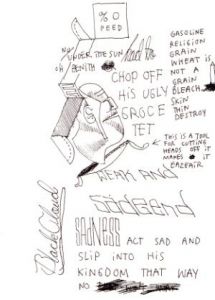 % O
FEED
GASOLINE
RELIGION
GRAIN
WHEAT IS
NOT A
GRAIN
BLEACH
SKIN
THIN
DESTROY
NO UNDER THE SUN
OH ZENITH
CHOP OFF
HIS UGLY
GROCE
TET
THIS IS A TOOL
FOR CUTTING
HEADS OFF IT
MAKES IT
EAZFAIR
BEAK AND
SADNESS ACT SAD AND
SLIP INTO HIS
KINGDOM THAT WAY
NO
Black Cloud